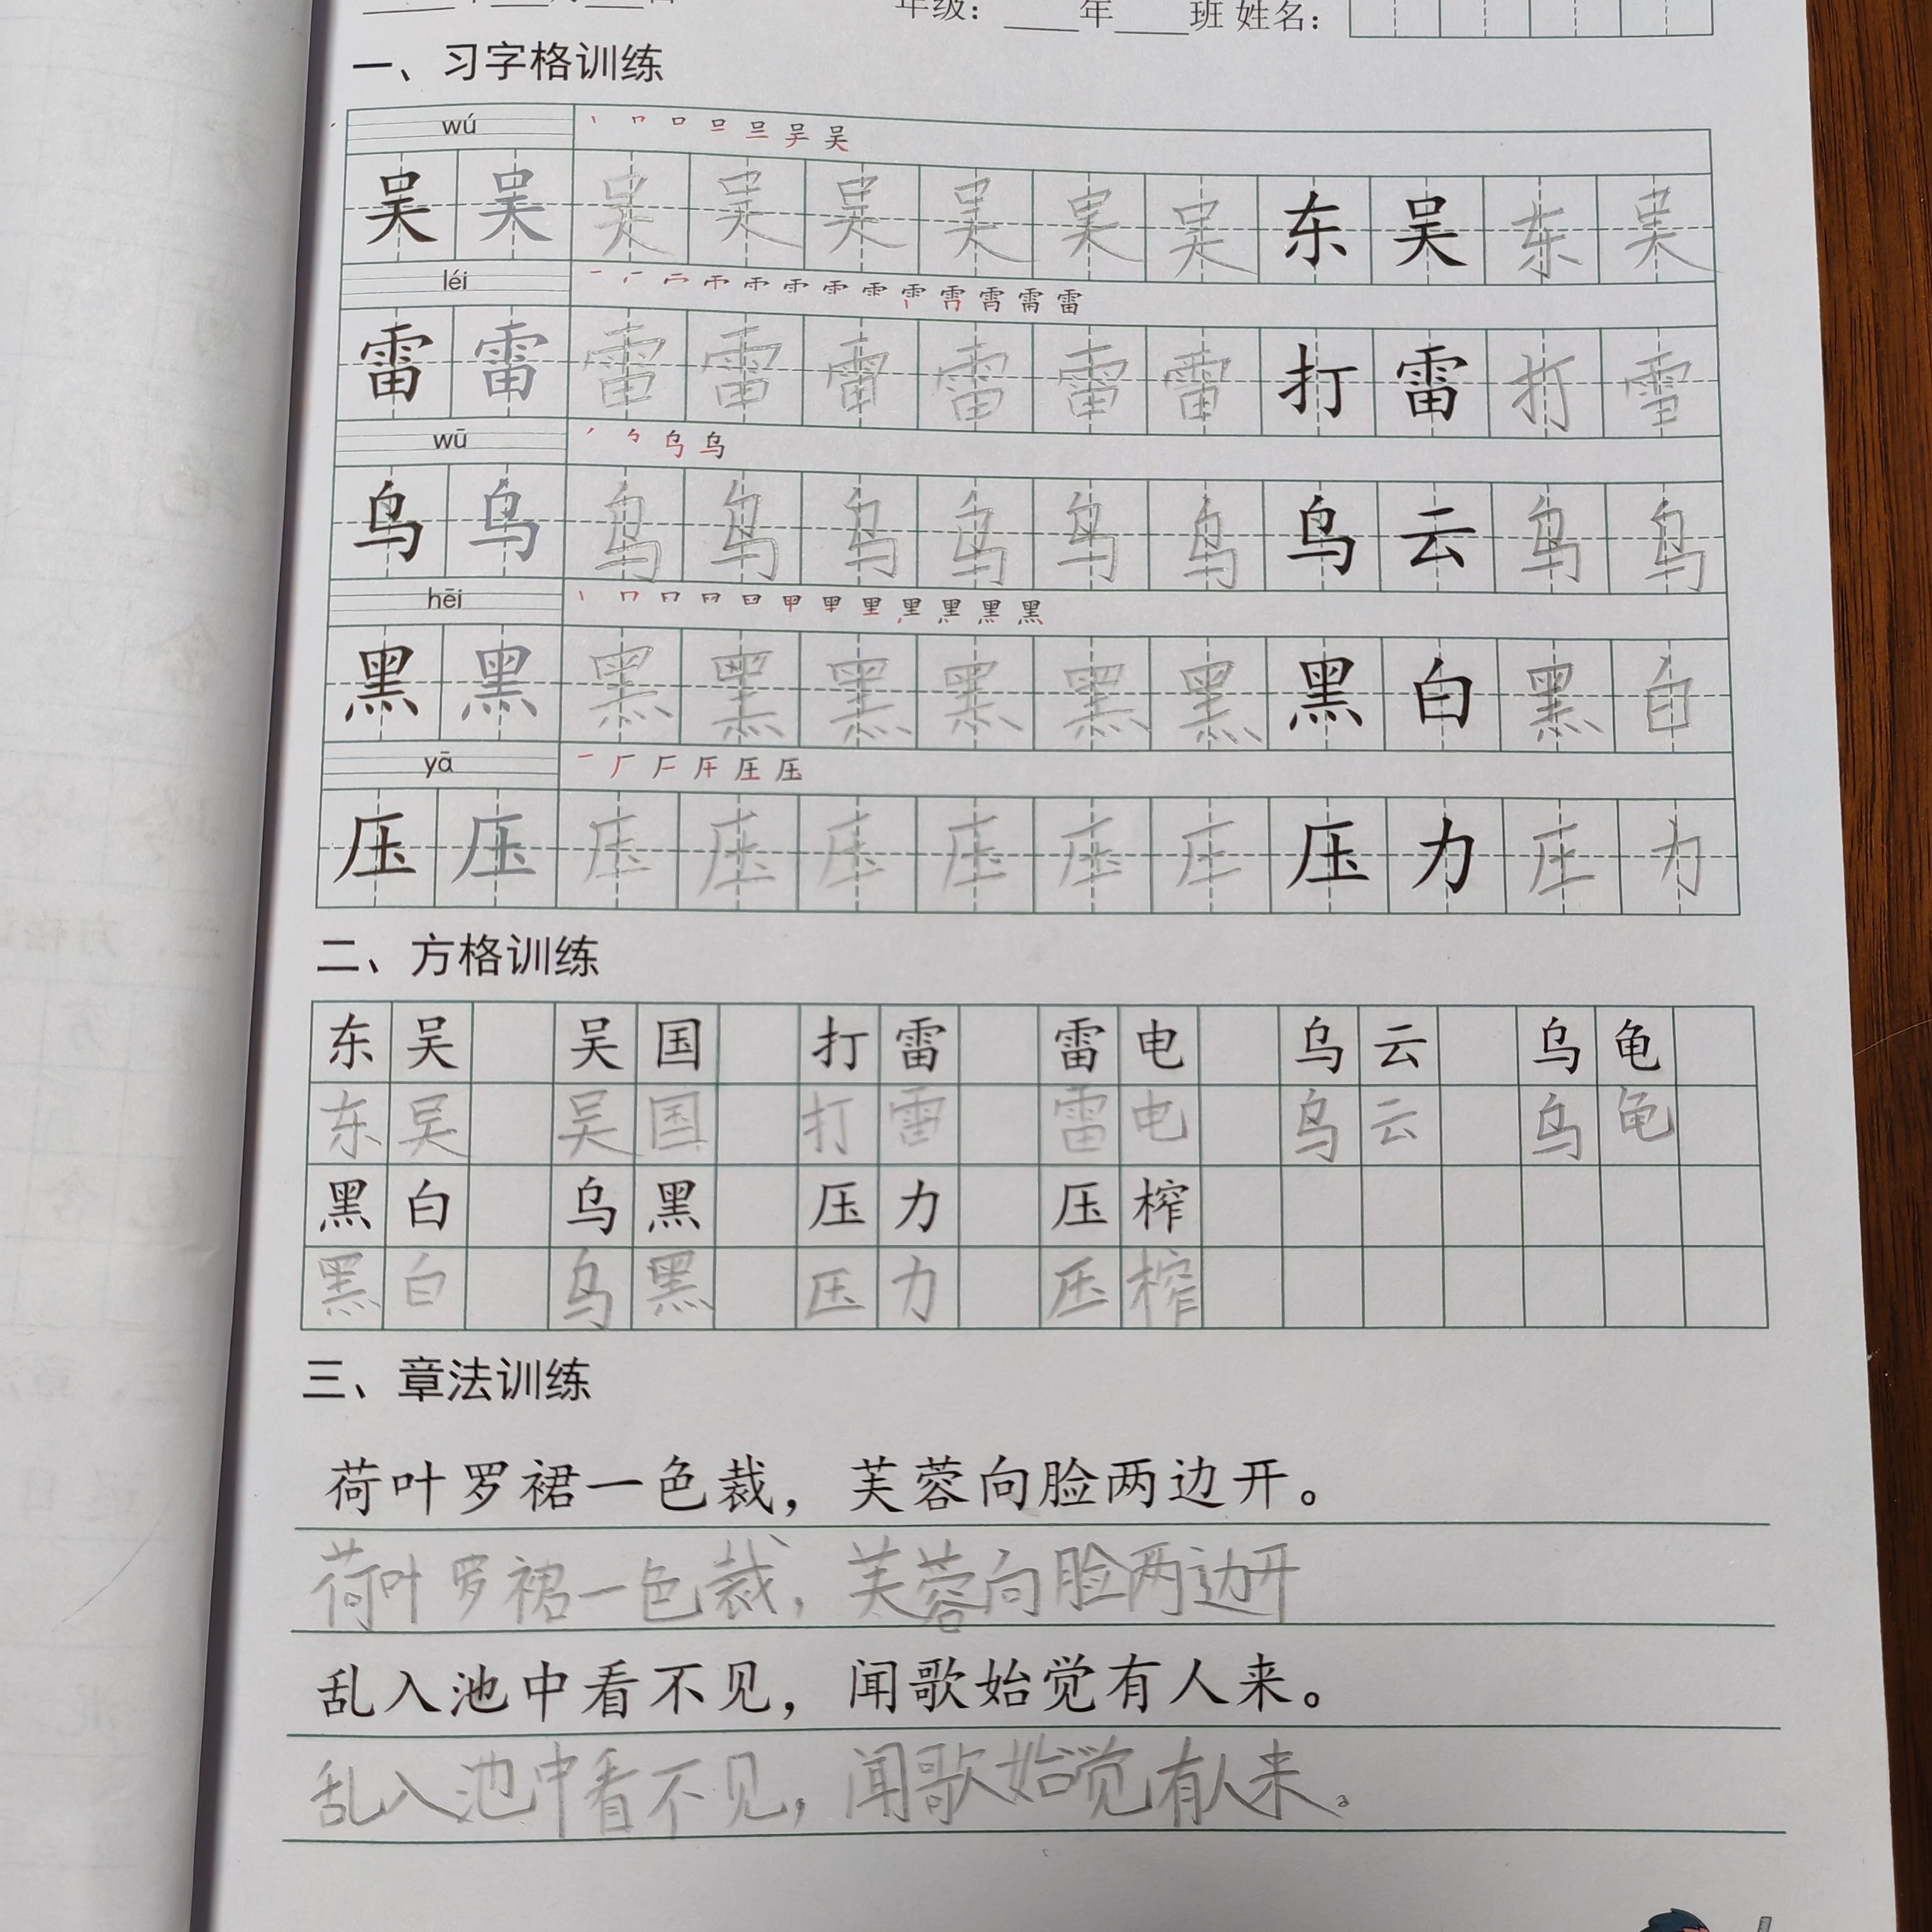 年级：____年____班 姓名：
一、习字格训练
wú
吴 吴 吴 吴 吴 吴 吴 吴 东 吴 东 吴
léi
雷 雷 雷 雷 雷 雷 雷 雷 打 雷 打 雪
wū
乌 乌 乌 乌 乌 乌 乌 乌 乌 云 乌 乌
hēi
黑 黑 黑 黑 黑 黑 黑 黑 黑 白 黑 白
yā
压 压 压 压 压 压 压 压 压 力 压 力
二、方格训练
东吴 吴国 打雷 雷电 乌云 乌龟
东吴 吴国 打雷 雷电 乌云 乌龟
黑白 乌黑 压力 压榨
黑白 乌黑 压力 压榨
三、章法训练
荷叶罗裙一色裁，芙蓉向脸两边开。
荷叶罗裙一色裁，芙蓉向脸两边开
乱入池中看不见，闻歌始觉有人来。
乱入池中看不见，闻歌始觉有人来。